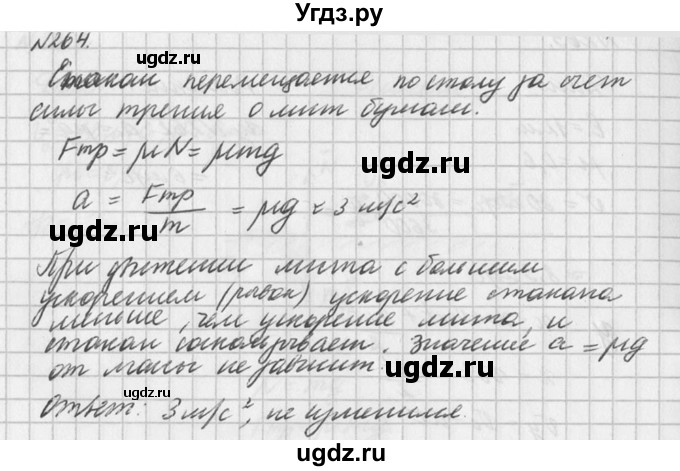 Угдз.ру
№264.
Стакан перемещается по столу за счет
силы трения о лист бумаги.
Fтр = μN = μmg
a = Fтр/m = μg = 3 м/с²
При движении листа с большим
ускорением (рывок) ускорение стакана
меньше, чем ускорение листа, и
стакан соскальзывает. Значение a = μg
от массы не зависит.
Ответ: 3 м/с², не изменился.
gdz.ru
gdz.ru
gdz.ru
gdz.ru